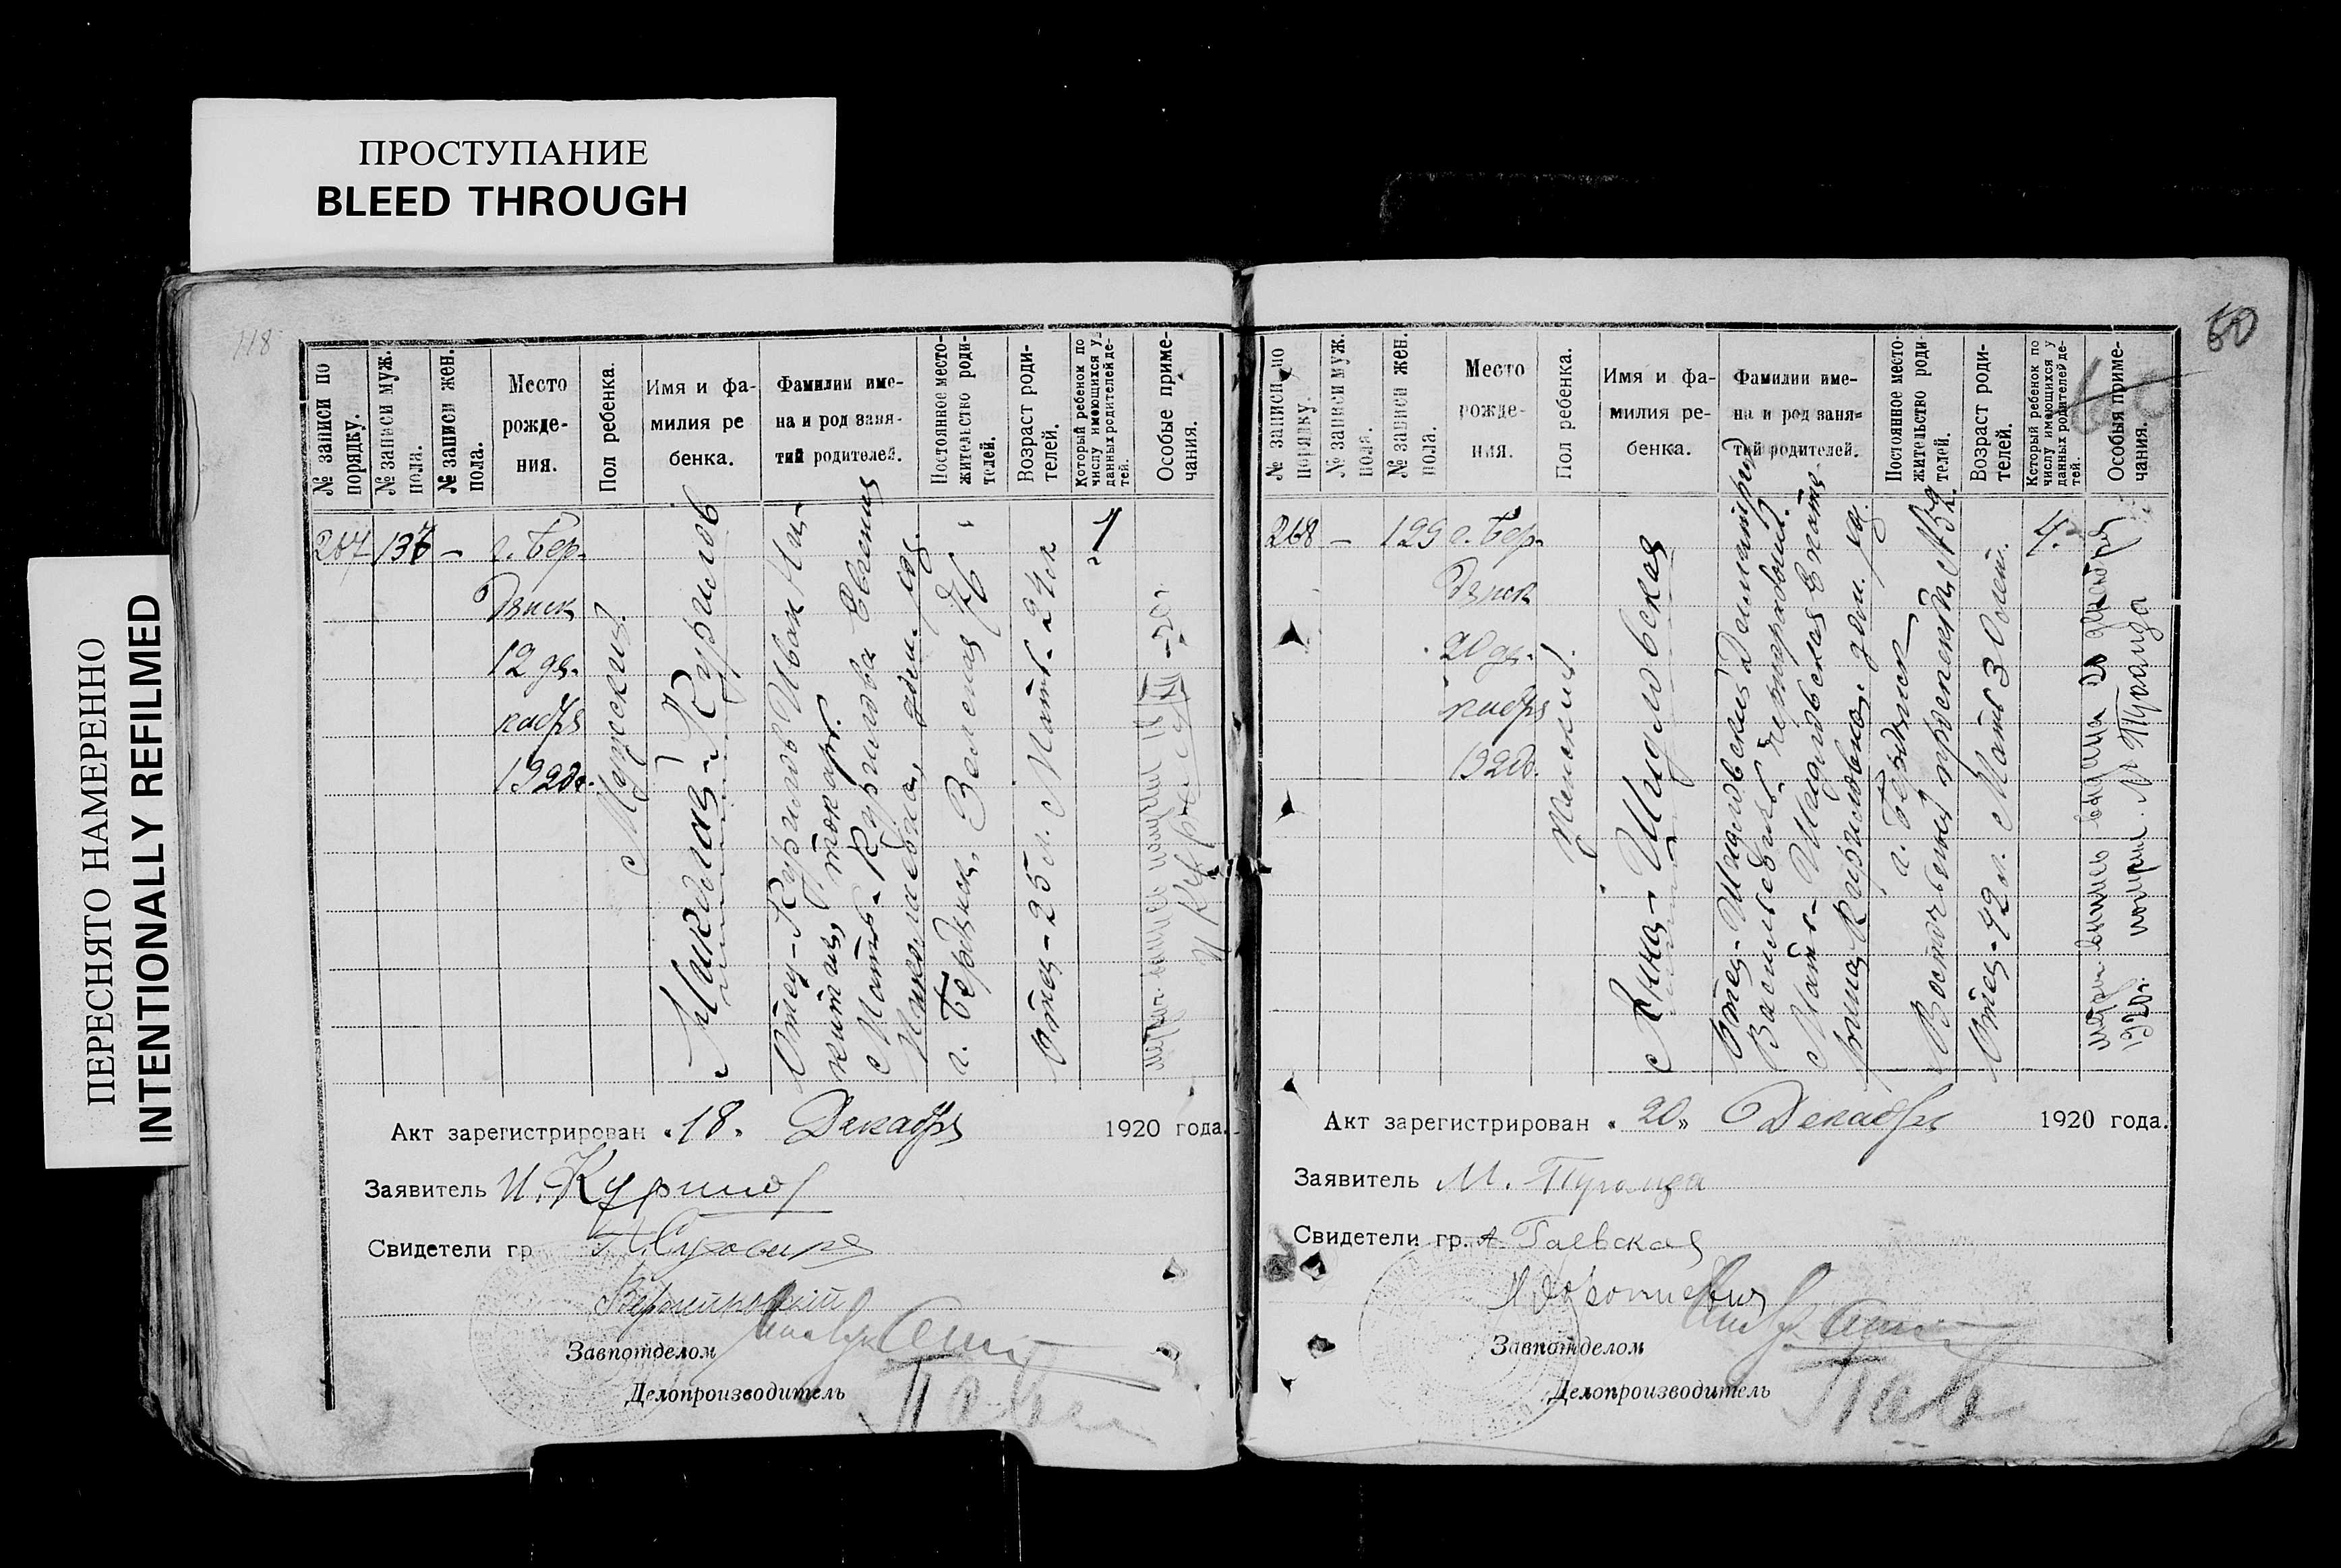 ПРОСТУПАНИЕ
BLEED THROUGH
ПЕРЕСНЯТО НАМЕРЕННО
INTENTIONALLY REFILMED
118
№ записи по
порядку.
№ записи муж.
пола.
№ записи жен.
пола.
Место
рожде-
ния.
Пол ребенка.
Имя и фа-
милия ре
бенка.
Фамилии име-
на и род заня-
тий родителей.
Постоянное место-
жительство роди-
телей.
Возраст роди-
телей.
Который ребенок по
числу имеющихся у
данных родителей де-
тей.
Особые приме-
чания.
267
137
—
г. Бер-
дянск
12 де-
кабря
1920 г.
Мужский.
Николай - Курилов
Отец - Курилов Иван Ни-
китич, токарь.
Мать - Курилова Евгения
Николаевна, дом. хоз.
г. Бердянск, Зеленая 76.
Отец - 25 л. Мать - 24 л.
1
Акт зарегистрирован „18„ Декабря 1920 года.
Заявитель И. Курилов
Свидетели гр
Завпотделом
Делопроизводитель
60
№ записи по
порядку.
№ записи муж.
пола.
№ записи жен.
пола.
Место
рожде-
ния.
Пол ребенка.
Имя и фа-
милия ре-
бенка.
Фамилии име-
на и род заня-
тий родителей.
Постоянное место-
жительство роди-
телей.
Возраст роди-
телей.
Который ребенок по
числу имеющихся у
данных родителей де-
тей.
Особыя приме-
чания.
268
—
129
г. Бер-
дянск
20 де-
кабря
1920.
Женский.
Анна - Шидловская
Отец - Шидловский Дмитрий
Васильевич.
Мать - Шидловская Екате-
рина Кирилловна, дом. хоз.
г. Бердянск
Восточный проспект, №
Отец - 42 л. Мать 30 лет.
4.
1920 г.
Акт зарегистрирован „20„ Декабря 1920 года.
Заявитель М.
Свидетели гр. А. Гаевская
Завпотделом
Делопроизводитель